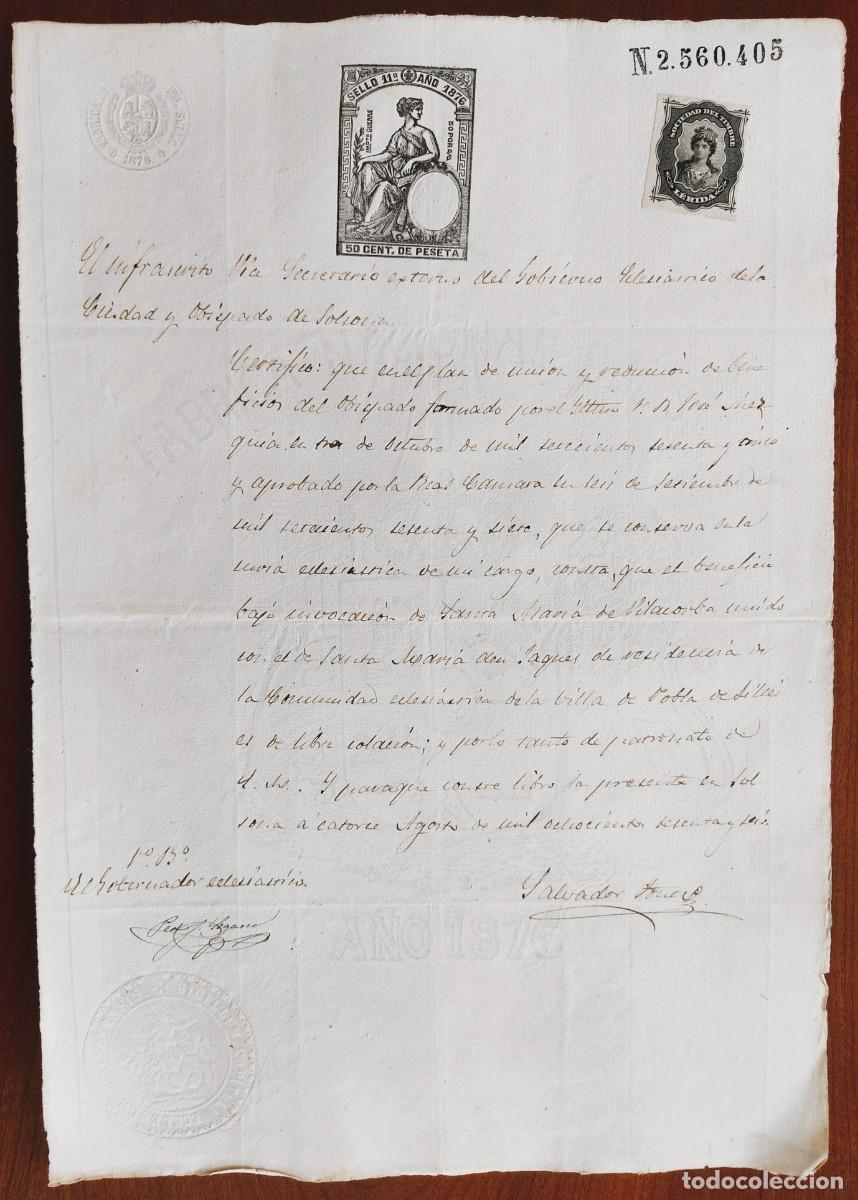 N. 2.560.405
SELLO 11º AÑO 1876
IMPTO GUERRA
50 CENT. DE PESETA
SOCIEDAD DEL TIMBRE
LÉRIDA
1876
El infrascrito Vice Secretario externo del Gobierno Eclesiastico de la
Ciudad y Obispado de Solsona.
Certifico: que en el plan de unión y reducción de bene
ficios del Obispado formado por el Iltmo S. D. José Mez-
quia en tres de Octubre de mil setecientos sesenta y cinco
y aprobado por la Real Cámara en seis de Setiembre de
mil setecientos sesenta y siete, que se conserva en la
curia eclesiastica de mi cargo, consta, que el beneficio
bajo invocación de Santa Maria de Vilacorba unido
con el de Santa Maria den Jaques de residencia de
la Comunidad eclesiástica de la villa de Pobla de Lillet
es de libre colación; y por lo tanto de patronato de
S. M. Y para que conste libro la presente en Sol
sona á catorce Agosto de mil ochocientos setenta y seis.
Vº Bº
El Gobernador eclesiastico
Salvador
Segarra